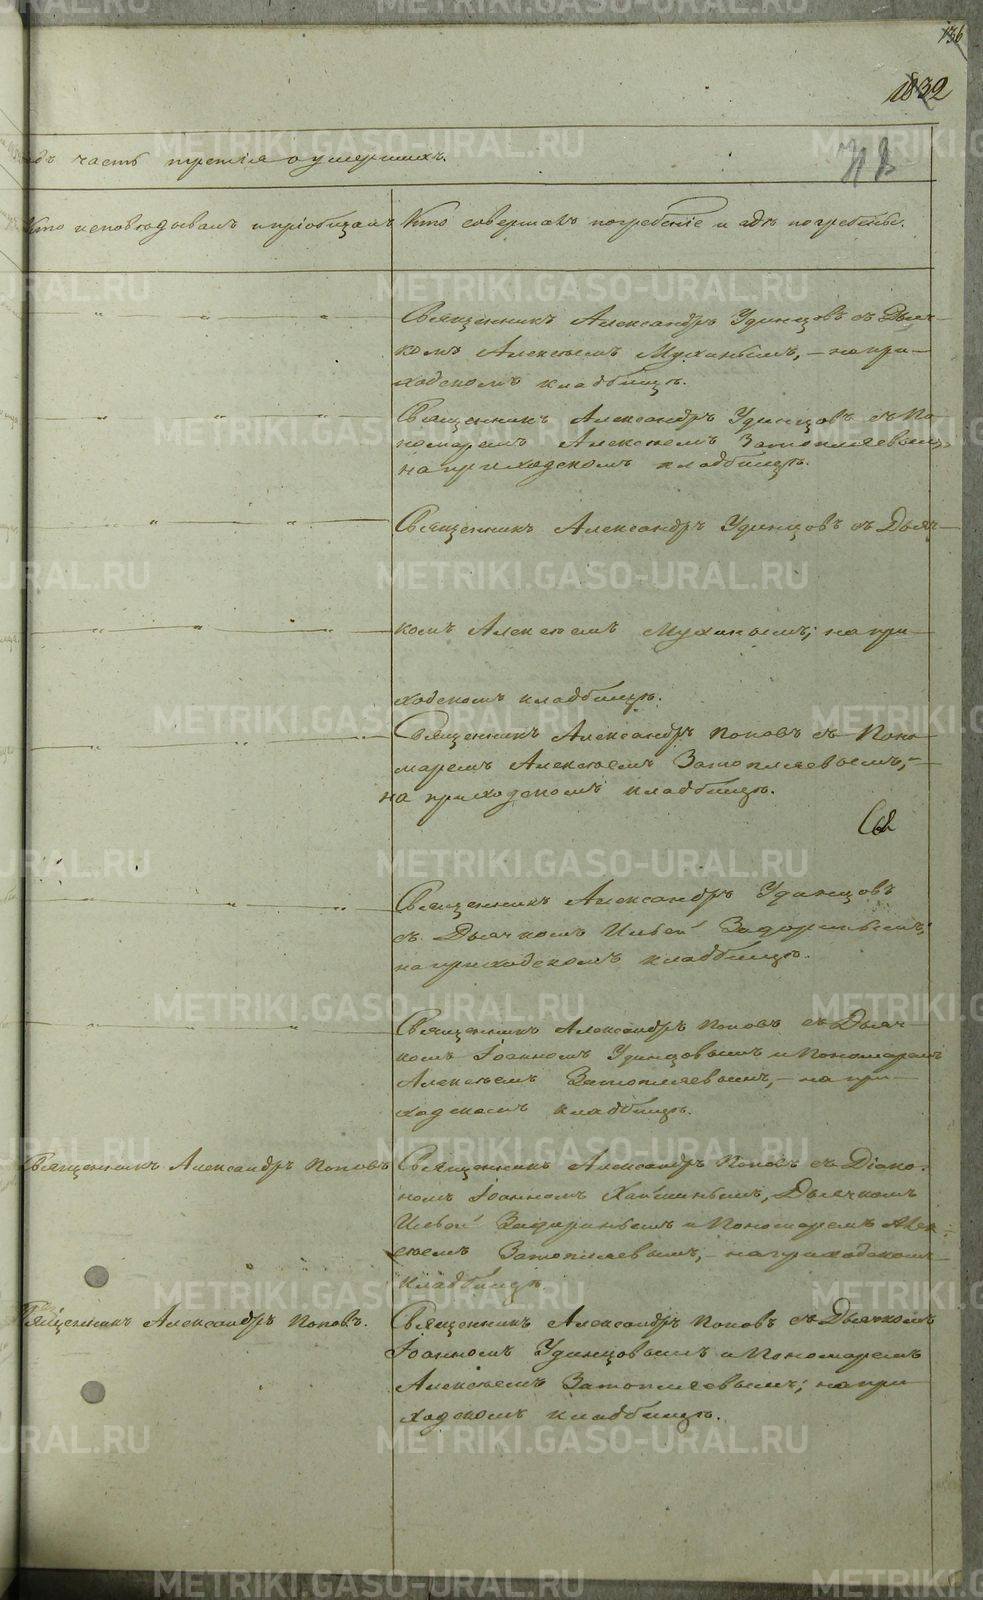 136
1832
одъ часть третiя о умершихъ.
Кто исповѣдывалъ и прiобщалъ
Кто совершалъ погребенiе и гдѣ погребены.
Священникъ Александръ Удинцовъ съ Дьяч-
комъ Алексѣемъ Мухинымъ, - на при-
ходскомъ кладбищѣ.
Священникъ Александръ Удинцовъ съ По-
номаремъ Алексѣемъ Затопляевымъ,
на приходскомъ кладбищѣ.
Священникъ Александръ Удинцовъ съ Дьяч-
комъ Алексѣемъ Мухинымъ; на при-
ходскомъ кладбищѣ.
Священникъ Александръ Поповъ съ Поно-
маремъ Алексѣемъ Затопляевымъ, -
на приходскомъ кладбищѣ.
Священникъ Александръ Удинцовъ
съ Дьячкомъ Ильей Задоринымъ;
на приходскомъ кладбищѣ.
Священникъ Александръ Поповъ съ Дьяч-
комъ Iоанномъ Удинцовымъ и Пономаремъ
Алексѣемъ Затопляевымъ, - на при-
ходскомъ кладбищѣ.
Священникъ Александръ Поповъ
Священникъ Александръ Поповъ съ Дiако-
номъ Iоанномъ Дьячкомъ
Ильей Задоринымъ и Пономаремъ Алек-
сѣемъ Затопляевымъ, - на приходскомъ
кладбищѣ.
Священникъ Александръ Поповъ.
Священникъ Александръ Поповъ съ Дьячкомъ
Iоанномъ Удинцовымъ и Пономаремъ
Алексѣемъ Затопляевымъ; на при
ходскомъ кладбищѣ.
METRIKI.GASO-URAL.RU